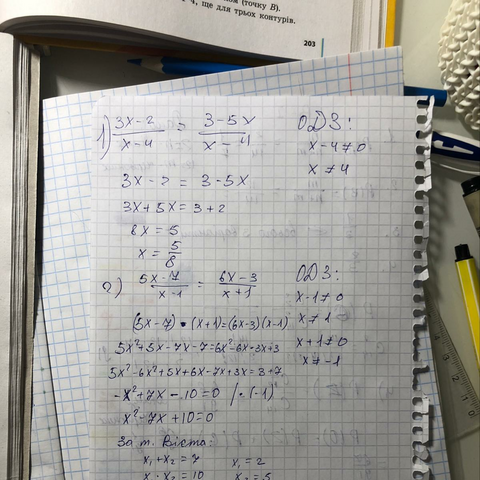 (точку B).
4, ще для трьох контурів.
203
1) (3x-2)/(x-4) = (3-5x)/(x-4)
ОДЗ:
x-4≠0
x≠4
3x-2 = 3-5x
3x+5x = 3+2
8x = 5
x = 5/8
2) (5x-7)/(x-1) = (6x-3)/(x+1)
ОДЗ:
x-1≠0
x≠1
x+1≠0
x≠-1
(5x-7)•(x+1)=(6x-3)(x-1)
5x²+5x-7x-7=6x²-6x-3x+3
5x²-6x²+5x+6x-7x+3x=3+7
-x²+7x-10=0 /·(-1)
x²-7x+10=0
За т. Вієта:
x₁+x₂=7 x₁=2
x₁·x₂=10 x₂=5